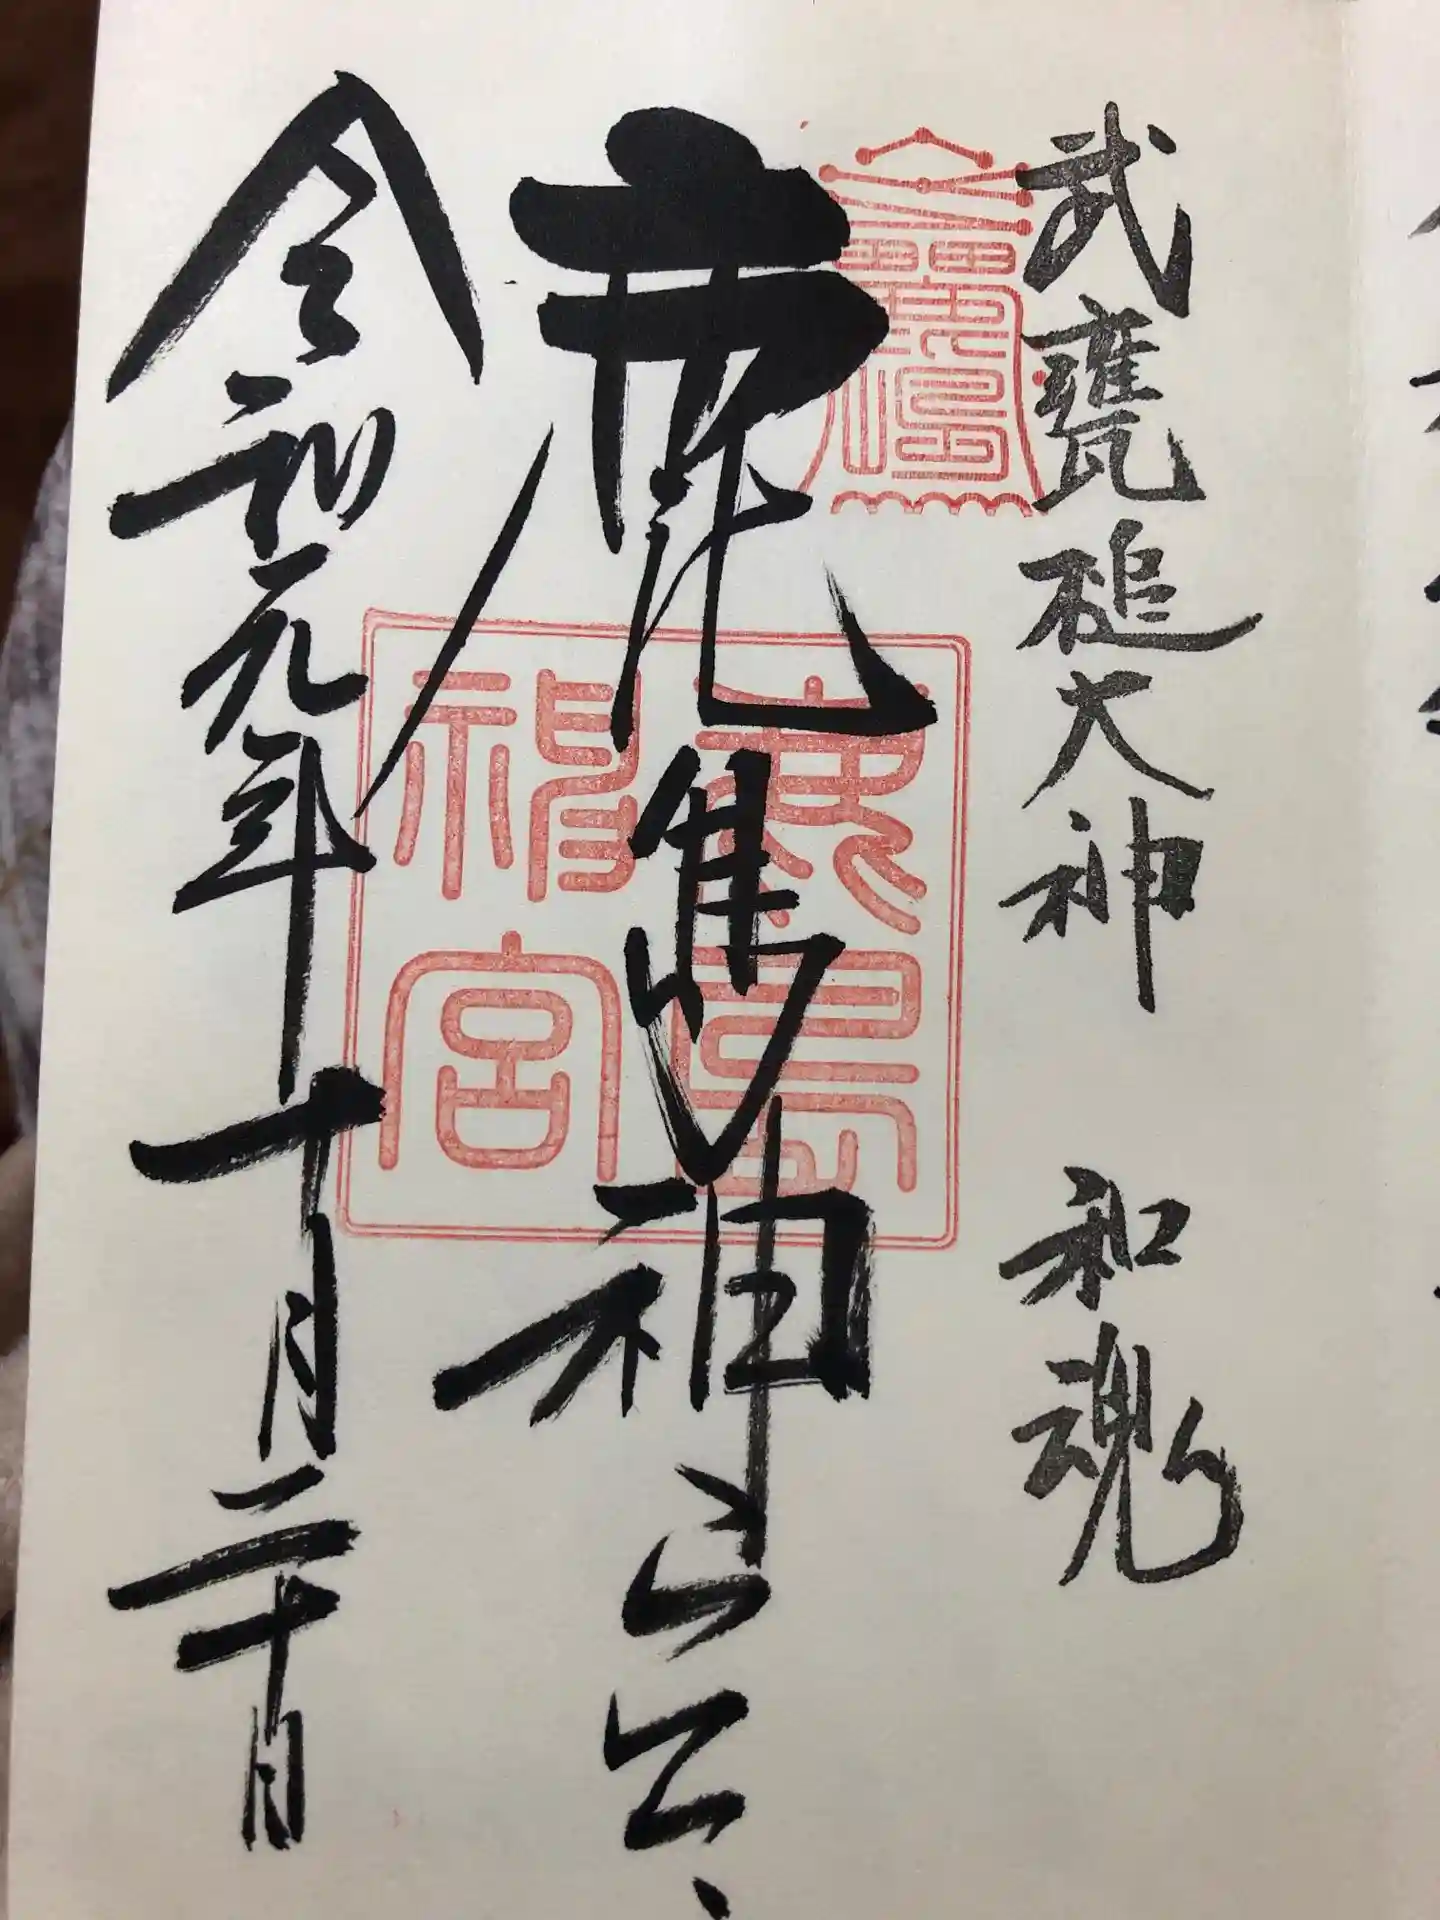 武甕槌大神 和魂
鹿島神宮
令和元年十月二十日
鹿島
神宮